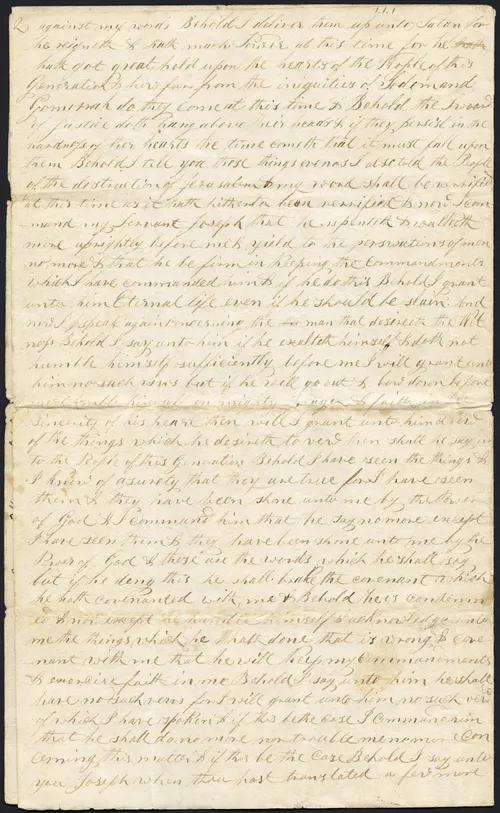 2 against my words Behold I deliver them up unto Satan for
he reigneth & hath much Power at this time for he hath
hath got great hold upon the hearts of the People of this
Generation & not far from the iniquities of Sodom and
Gomorrah do they come at this time & Behold the sword
of Justice doth hang above their heads & if they persist in the
hardness of their hearts the time cometh that it must fall upon
them Behold I tell you those things even as I also told the People
of the distruction of Jerusalem & my word shall be verrified
at this time as it hath hitherto been verrified & now I com
mand my Servant Joseph that he repenteth & walketh
more uprightly before me & yield to the perswasions of men
no more & that he be firm in keeping the Commandments
which I have commanded him & if he do this Behold I grant
unto him Eternal life even if he should be slain And
now I speak again concerning the man that desireth the Wit
ness Behold I say unto him if he exalteth himself & doth not
humble himself sufficiently before me I will grant unto
him no such views but if he will go out & bow down before
me & humble himself in mighty prayer & faith in the
sincerity of his heart then will I grant unto him
of the things which he desireth to and then shall he say un
to the People of this Generation Behold I have seen the things &
I know of asurety that they are true for I have seen
them & they have been shone unto me by the Power
of God & I command him that he say no more except
I have seen them & they have been shone unto me by the
Power of God & these are the words which he shall say
but if he deny this he shall brake the covenant which
he hath covenanted with me & Behold he is condemn
ed & now except he humble himself & acknowledge unto
me the things which he hath done that is wrong & cove
nant with me that he will keep my Commandments
& exercise faith in me Behold I say unto him he shall
have no such views for I will grant unto him no such
of which I have spoken & if this be the case I command him
that he shall do no more nor trouble me no more con
cerning this matter & if this be the case Behold I say unto
you Joseph when thou hast translated a few more